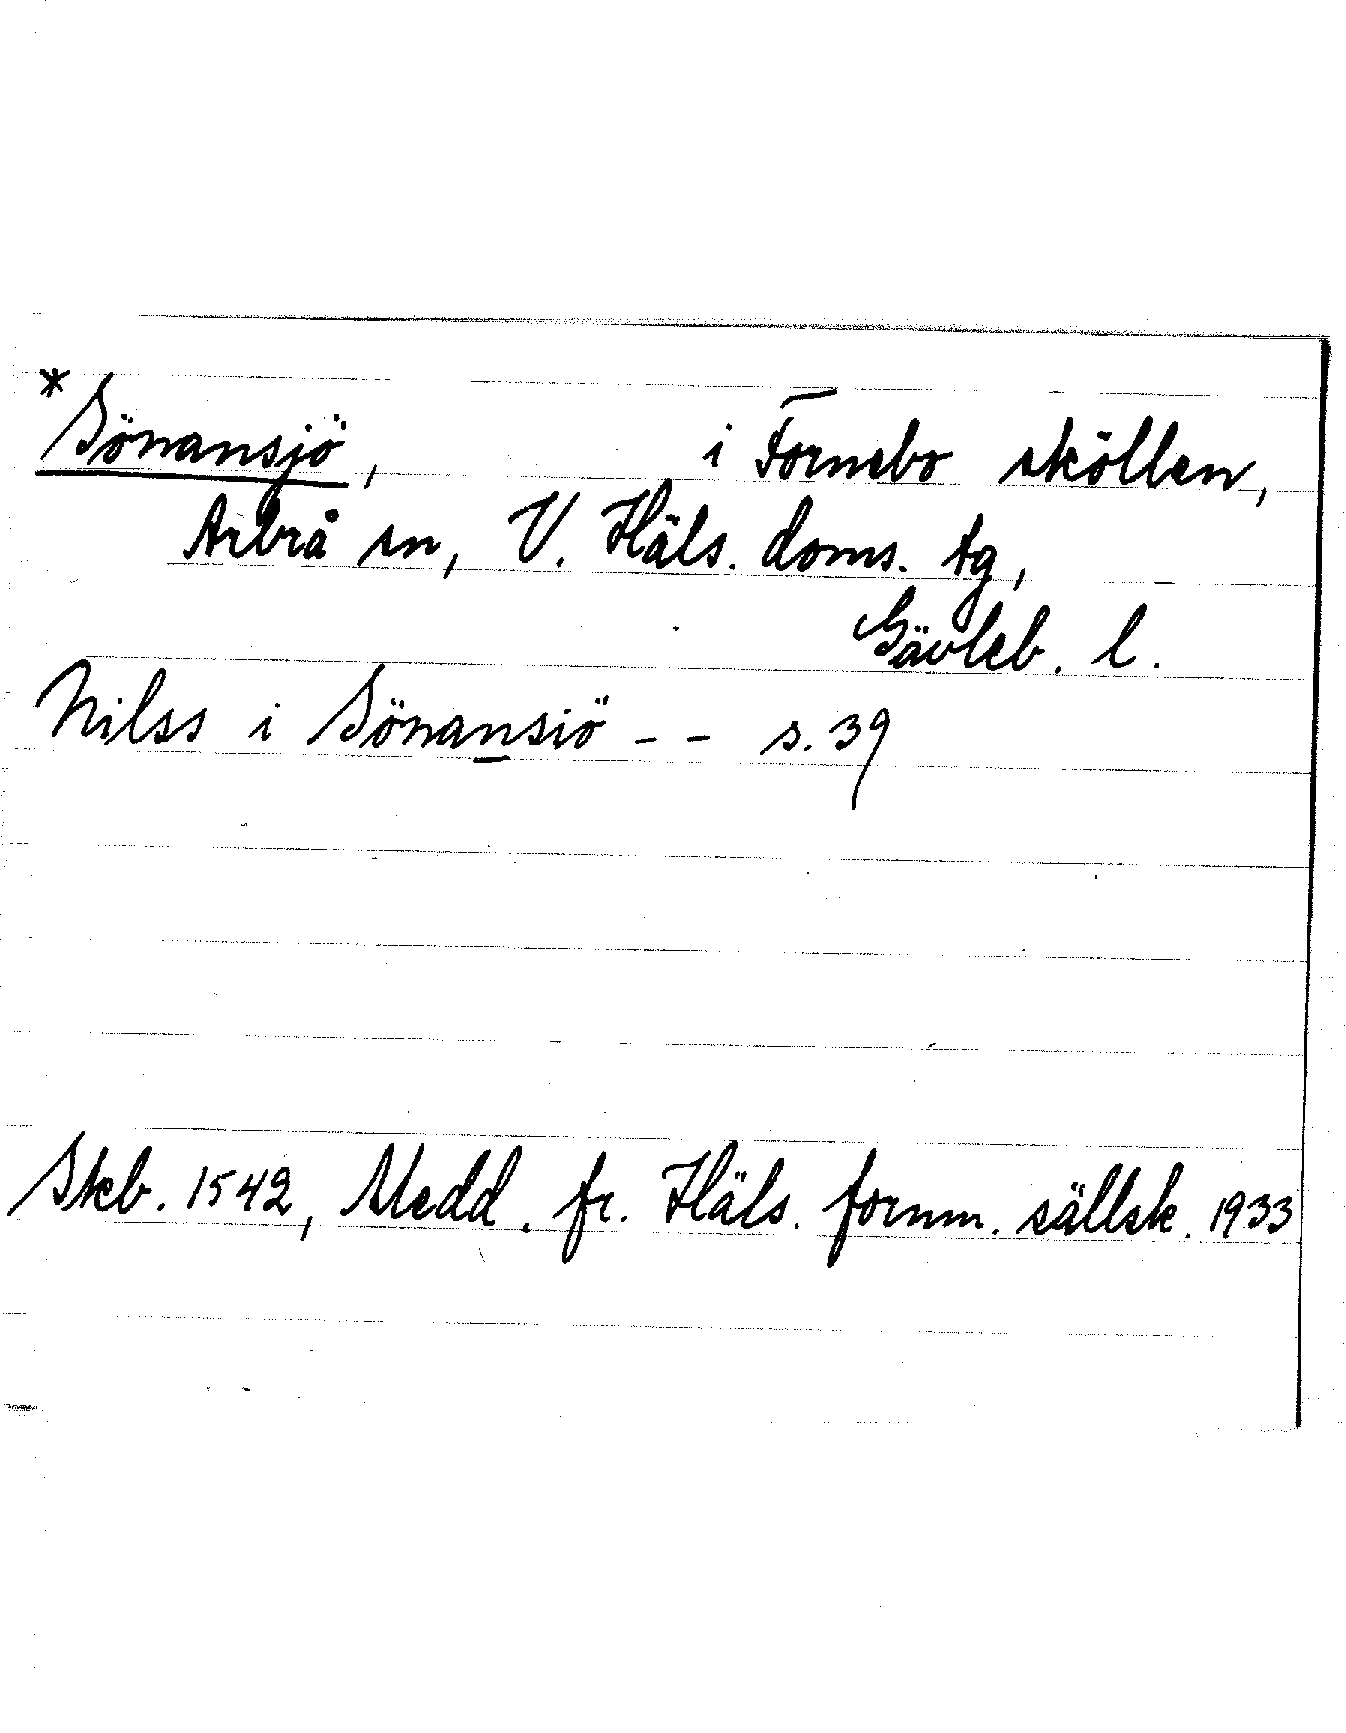 *Sönansjö, i Fornebo sköllen,
Arbrå sn, V. Häls. doms. tg,
Gävleb. l.
Nilss i Sönansiö - - s. 39
Skb. 1542, Medd. fr. Häls. fornm. sällsk. 1933